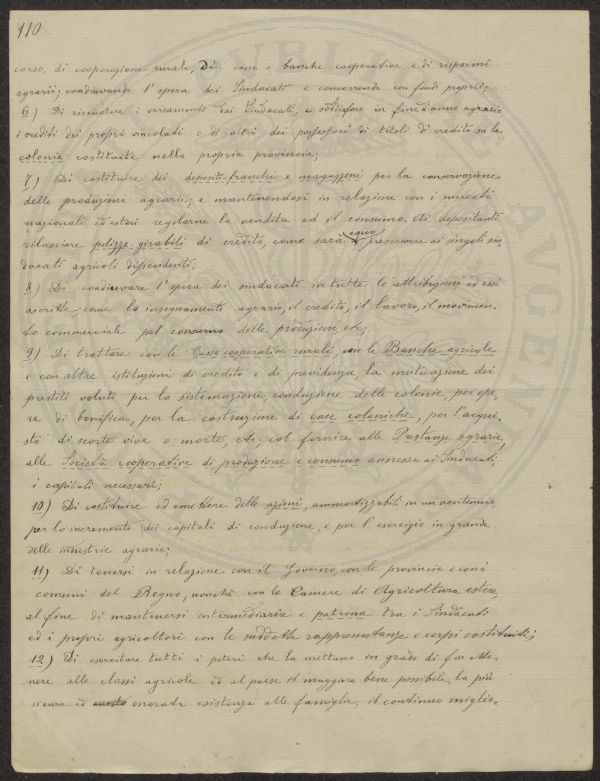 110
corso, di cooperazione rurale, Di casse o banche cooperative e di risparmi
agrarii; coadiuvando l'opera dei Sindacati e concorrendo con fondi proprii;
6) Di riscuotere i versamento dai Sindacati, e soddisfare in fine d'anno agrario
i crediti dei propri vincolati e di altri dei possessori di titoli di credito su le
colonie costituite nella propria provincia;
7) Di costituire dei depositi-franchi e magazzeni per la conservazione
delle produzioni agrarie; e mantenendosi in relazione con i mercati
nazionali ed esteri regolarne la vendita ed il consumo. Ai depositanti
rilasciare polizze-girabili di credito, come sarà equo prescrivere ai singoli sin
dacati agricoli dipendenti;
8) Di coadiuvare l'opera dei sindacati in tutte le attribuzioni ad essi
ascritte; come lo insegnamento agrario, il credito, il lavoro, il movimen-
to commerciale pel consumo delle produzioni, etc;
9) Di trattare con le Casse cooperative rurali, con le Banche agricole
e con altre istituzioni di credito e di previdenza, la mutuazione dei
prestiti voluti per la sistemazione, conduzione delle colonie, per ope,
re di bonifica, per la costruzione di case coloniche, per l'acqui,
sto di scorte vive o morte, etc; col fornire alle Prestanze agrarie,
alle Società cooperative di produzione e consumo annesse ai Sindacati;
i capitali necessari;
10) Di costituire ed emettere delle azioni, ammortizzabili in un ventennio
per lo incremento dei capitali di conduzione, e per l'esercizio in grande
delle industrie agrarie;
11) Di tenersi in relazione con il Governo, con le provincie e con i
comuni del Regno, nonchè con le Camere di Agricoltura estere,
al fine di mantenersi intermediaria e patrona tra i Sindacati
ed i propri agricoltori con le suddette rappresentanze e corpi costituiti;
12) Di esercitare tutti i poteri che la mettano in grado di far otte-
nere alle classi agricole ed al paese il maggiore bene possibile, la più
sicura ed onorata esistenza alle famiglie, il continuo miglio-